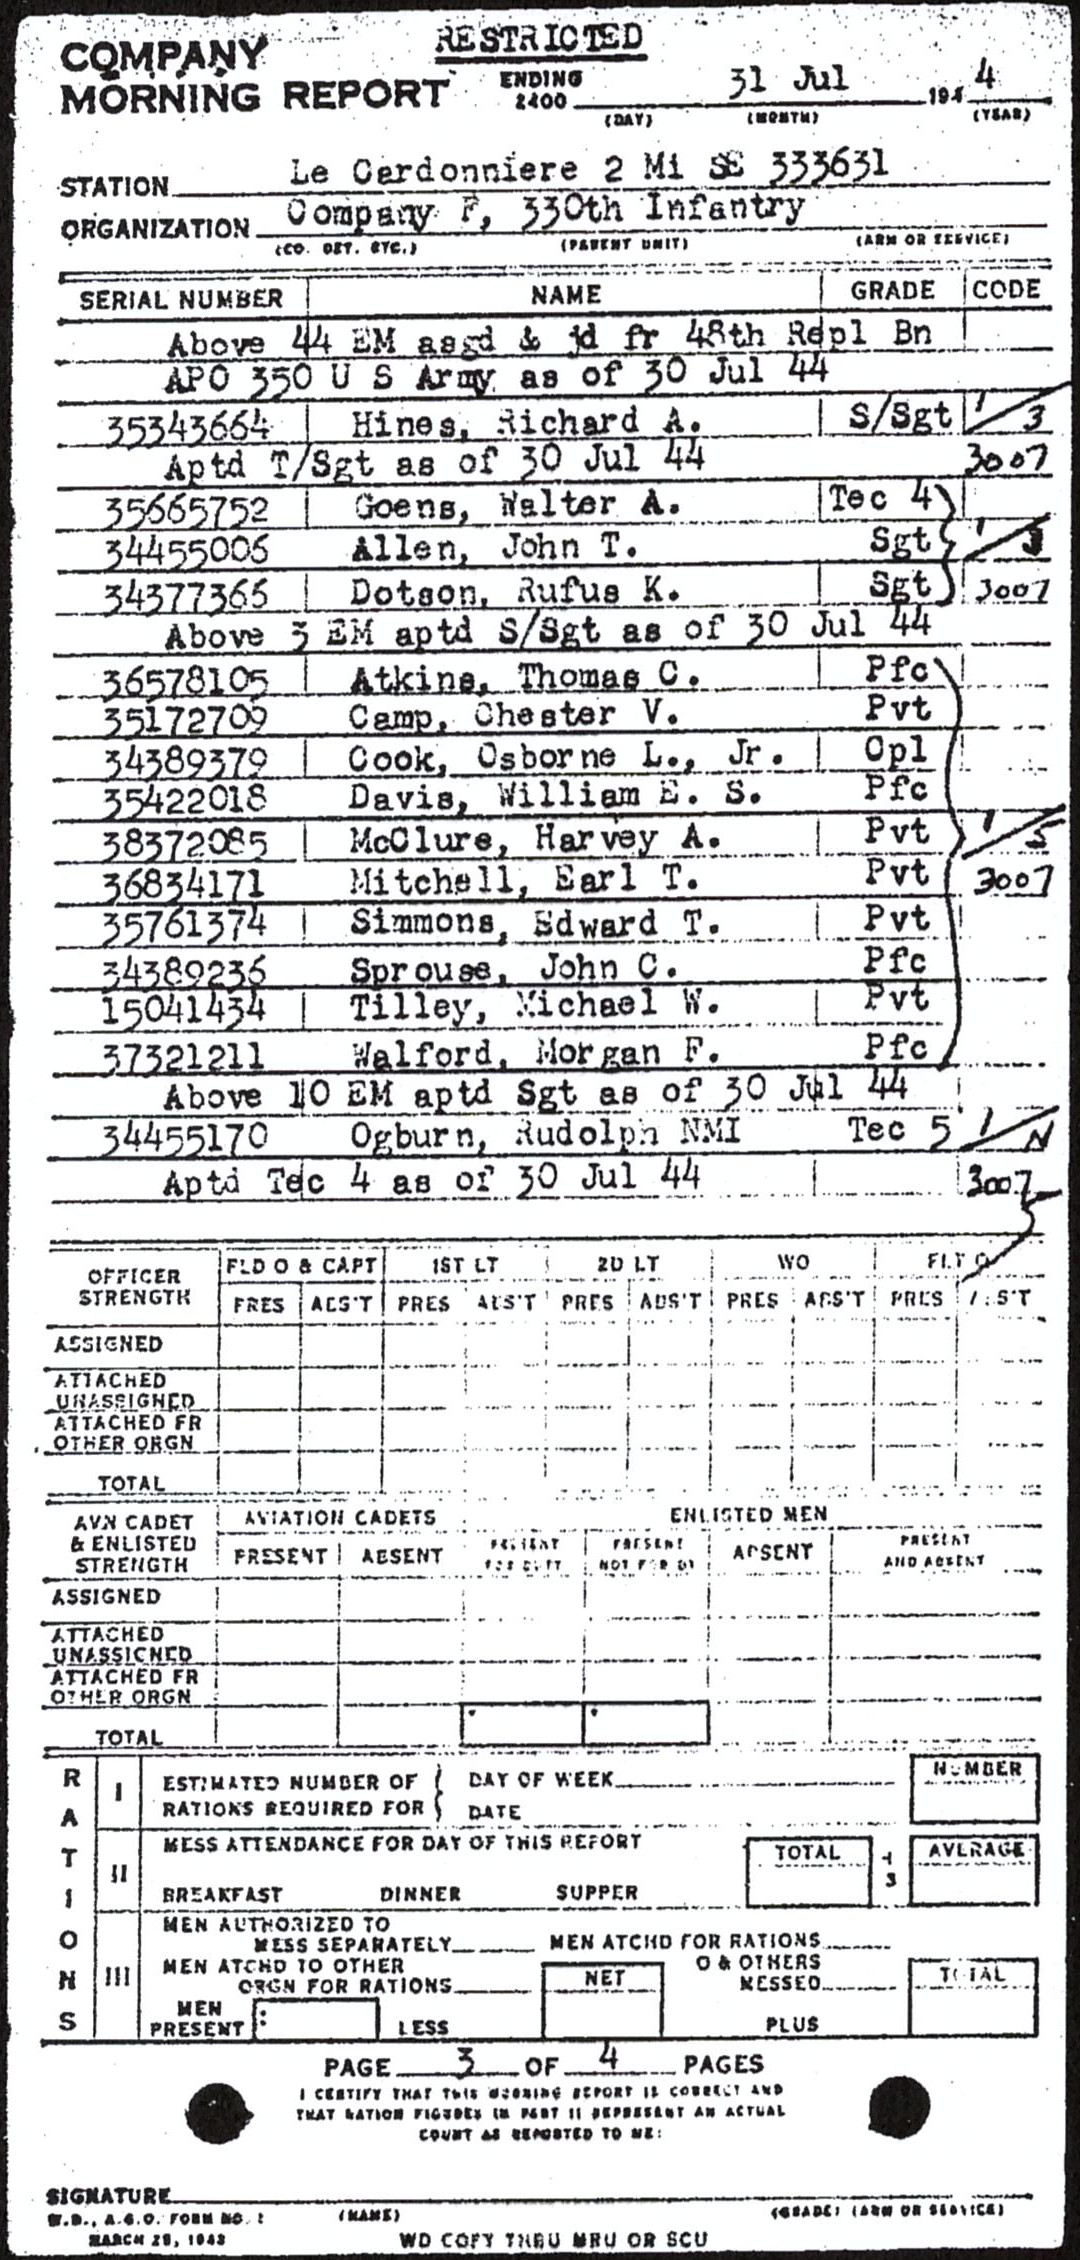 RESTRICTED
COMPANY
MORNING REPORT ENDING 2400 31 Jul 194 4
(DAY) (MONTH) (YEAR)
STATION Le Cardonniere 2 Mi SE 333631
ORGANIZATION Company F, 330th Infantry
(CO. DET. ETC.) (PARENT UNIT) (ARM OR SERVICE)
SERIAL NUMBER NAME GRADE CODE
Above 44 EM asgd & jd fr 48th Repl Bn
APO 350 U S Army as of 30 Jul 44
35343664 Hines, Richard A. S/Sgt 1/3
Aptd T/Sgt as of 30 Jul 44 3007
35665752 Goens, Walter A. Tec 4
34455006 Allen, John T. Sgt 1/3
34377366 Dotson, Rufus K. Sgt 3007
Above 3 EM aptd S/Sgt as of 30 Jul 44
36578105 Atkins, Thomas C. Pfc
35172709 Camp, Chester V. Pvt
34389379 Cook, Osborne L., Jr. Cpl
35422018 Davis, William E. S. Pfc
38372085 McClure, Harvey A. Pvt 1/5
36834171 Mitchell, Earl T. Pvt 3007
35761374 Simmons, Edward T. Pvt
34389236 Sprouse, John C. Pfc
15041434 Tilley, Michael W. Pvt
37321211 Walford, Morgan F. Pfc
Above 10 EM aptd Sgt as of 30 Jul 44
34455170 Ogburn, Rudolph NMI Tec 5 1/N
Aptd Tec 4 as of 30 Jul 44 3007
OFFICER STRENGTH FLD O & CAPT 1ST LT 2D LT WO FLT O
PRES ABS'T PRES ABS'T PRES ABS'T PRES ABS'T PRES ABS'T
ASSIGNED
ATTACHED
UNASSIGNED
ATTACHED FR
OTHER ORGN
TOTAL
AVN CADET & ENLISTED STRENGTH AVIATION CADETS ENLISTED MEN
PRESENT ABSENT PRESENT FOR DUTY PRESENT NOT FOR DY ABSENT PRESENT AND ABSENT
ASSIGNED
ATTACHED
UNASSIGNED
ATTACHED FR
OTHER ORGN
TOTAL
RATIONS
I ESTIMATED NUMBER OF RATIONS REQUIRED FOR DAY OF WEEK NUMBER
DATE
II MESS ATTENDANCE FOR DAY OF THIS REPORT TOTAL ÷ 3 AVERAGE
BREAKFAST DINNER SUPPER
III MEN AUTHORIZED TO
MESS SEPARATELY MEN ATCHD FOR RATIONS
MEN ATCHD TO OTHER
ORGN FOR RATIONS NET O & OTHERS MESSED TOTAL
MEN PRESENT LESS PLUS
PAGE 3 OF 4 PAGES
I CERTIFY THAT THIS MORNING REPORT IS CORRECT AND
THAT RATION FIGURES IN PART II REPRESENT AN ACTUAL
COUNT AS REPORTED TO ME:
SIGNATURE
W.D., A.G.O. FORM NO. 1 (NAME) (GRADE) (ARM OR SERVICE)
MARCH 25, 1943 WD COPY THRU MRU OR SCU